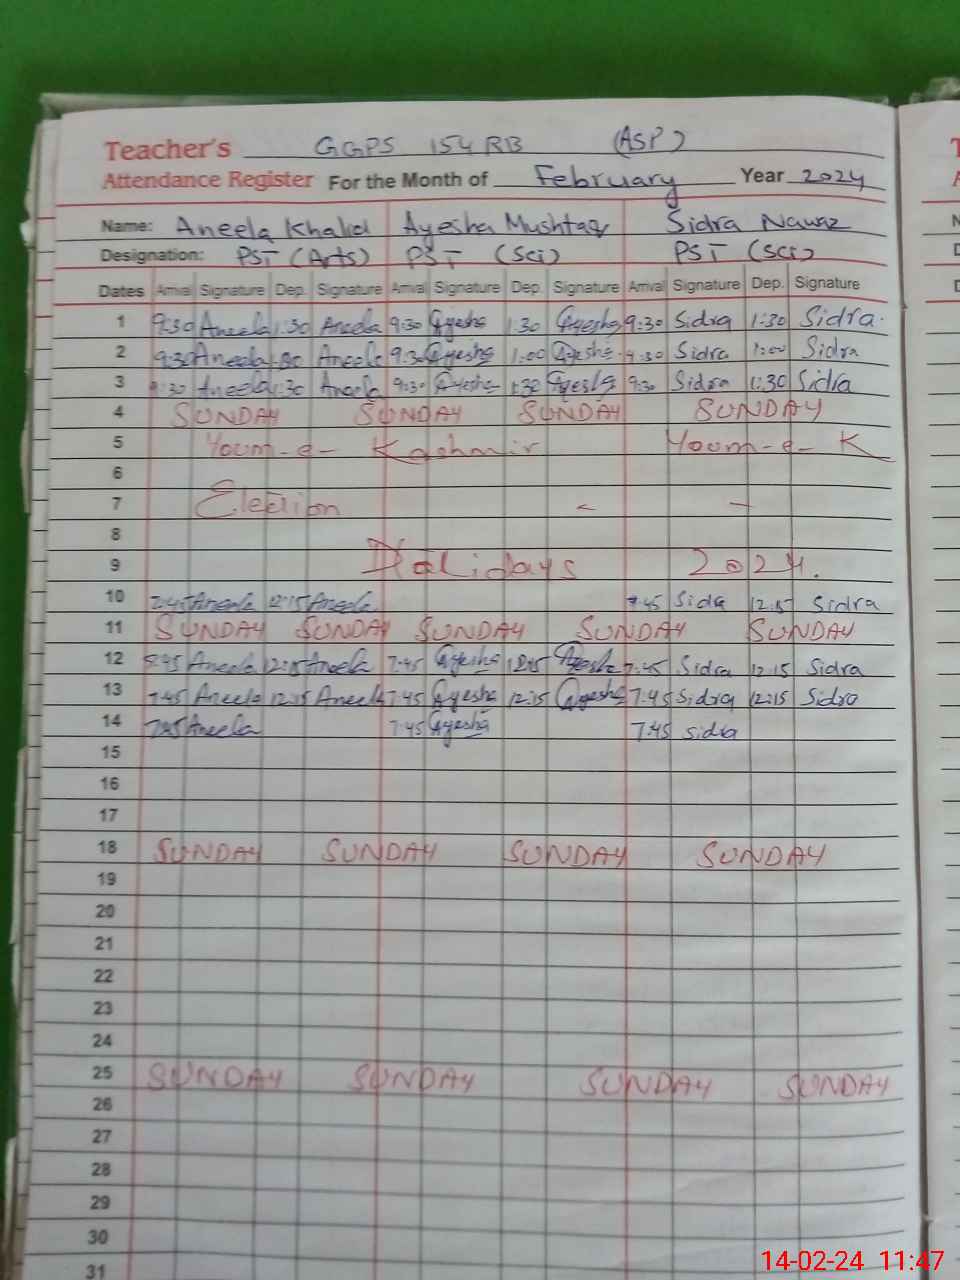 Teacher's GGPS 154 RB (ASP)
Attendance Register For the Month of February Year 2024
Name: Aneela Khalid Ayesha Mushtaq Sidra Nawaz
Designation: PST (Arts) PST (Sci) PST (Sci)
Dates Arrival Signature Dep. Signature Arrival Signature Dep. Signature Arrival Signature Dep. Signature
1 9:30 Aneela 1:30 Aneela 9:30 Ayesha 1:30 Ayesha 9:30 Sidra 1:30 Sidra.
2 9:30 Aneela Aneela 9:30 Ayesha 1:00 Ayesha 9:30 Sidra 1:00 Sidra
3 9:30 Aneela 1:30 Aneela 9:30 Ayesha 1:30 Ayesha 9:30 Sidra 1:30 Sidra
4 SUNDAY SUNDAY SUNDAY SUNDAY
5 Youm-e- Kashmir Youm-e- K
6
7 Election
8
9 Holidays 2024.
10 7:45 Aneela 12:15 Aneela 7:45 Sidra 12:15 Sidra
11 SUNDAY SUNDAY SUNDAY SUNDAY SUNDAY
12 Aneela 12:15 Aneela 7:45 Ayesha 12:15 Ayesha 7:45 Sidra 12:15 Sidra
13 7:45 Aneela 12:15 Aneela 7:45 Ayesha 12:15 Ayesha 7:45 Sidra 12:15 Sidra
14 7:45 Aneela 7:45 Ayesha 7:45 sidra
15
16
17
18 SUNDAY SUNDAY SUNDAY SUNDAY
19
20
21
22
23
24
25 SUNDAY SUNDAY SUNDAY SUNDAY
26
27
28
29
30
31
14-02-24 11:47